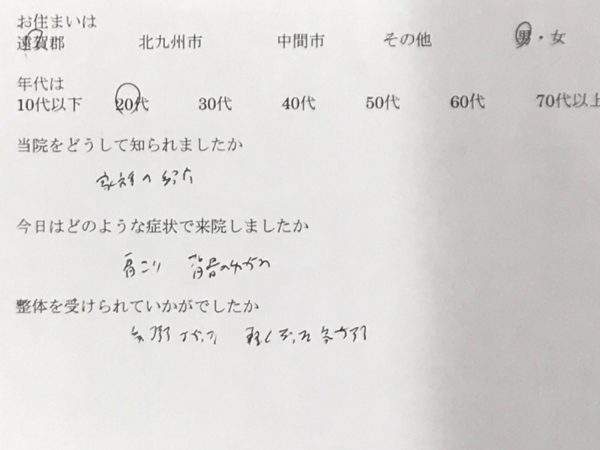 お住まいは
遠賀郡 北九州市 中間市 その他 男・女
年代は
10代以下 20代 30代 40代 50代 60代 70代以上
当院をどうして知られましたか
家族の紹介
今日はどのような症状で来院しましたか
肩こり 背骨のゆがみ
整体を受けられていかがでしたか
軽くなった気がする